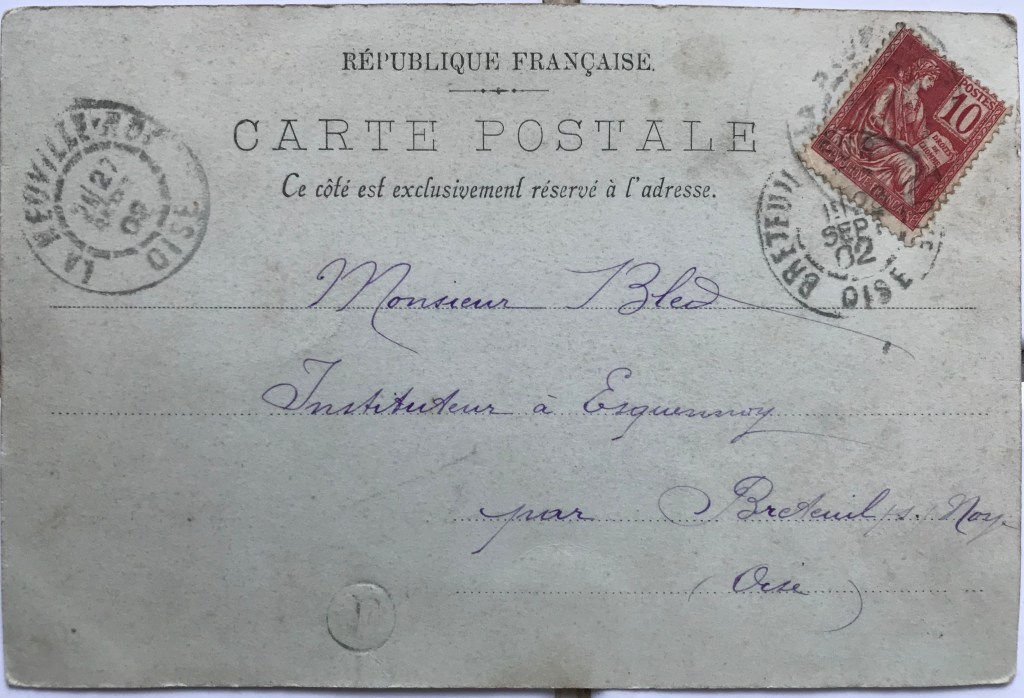 RÉPUBLIQUE FRANÇAISE.
CARTE POSTALE
Ce côté est exclusivement réservé à l'adresse.
LA NEUVILLE-ROY
OISE
27
02
POSTES
10
BRETEUIL
SEPT
02
OISE
Monsieur Bled
Instituteur à Esquennoy
par Breteuil /s. Noy-
(Oise)